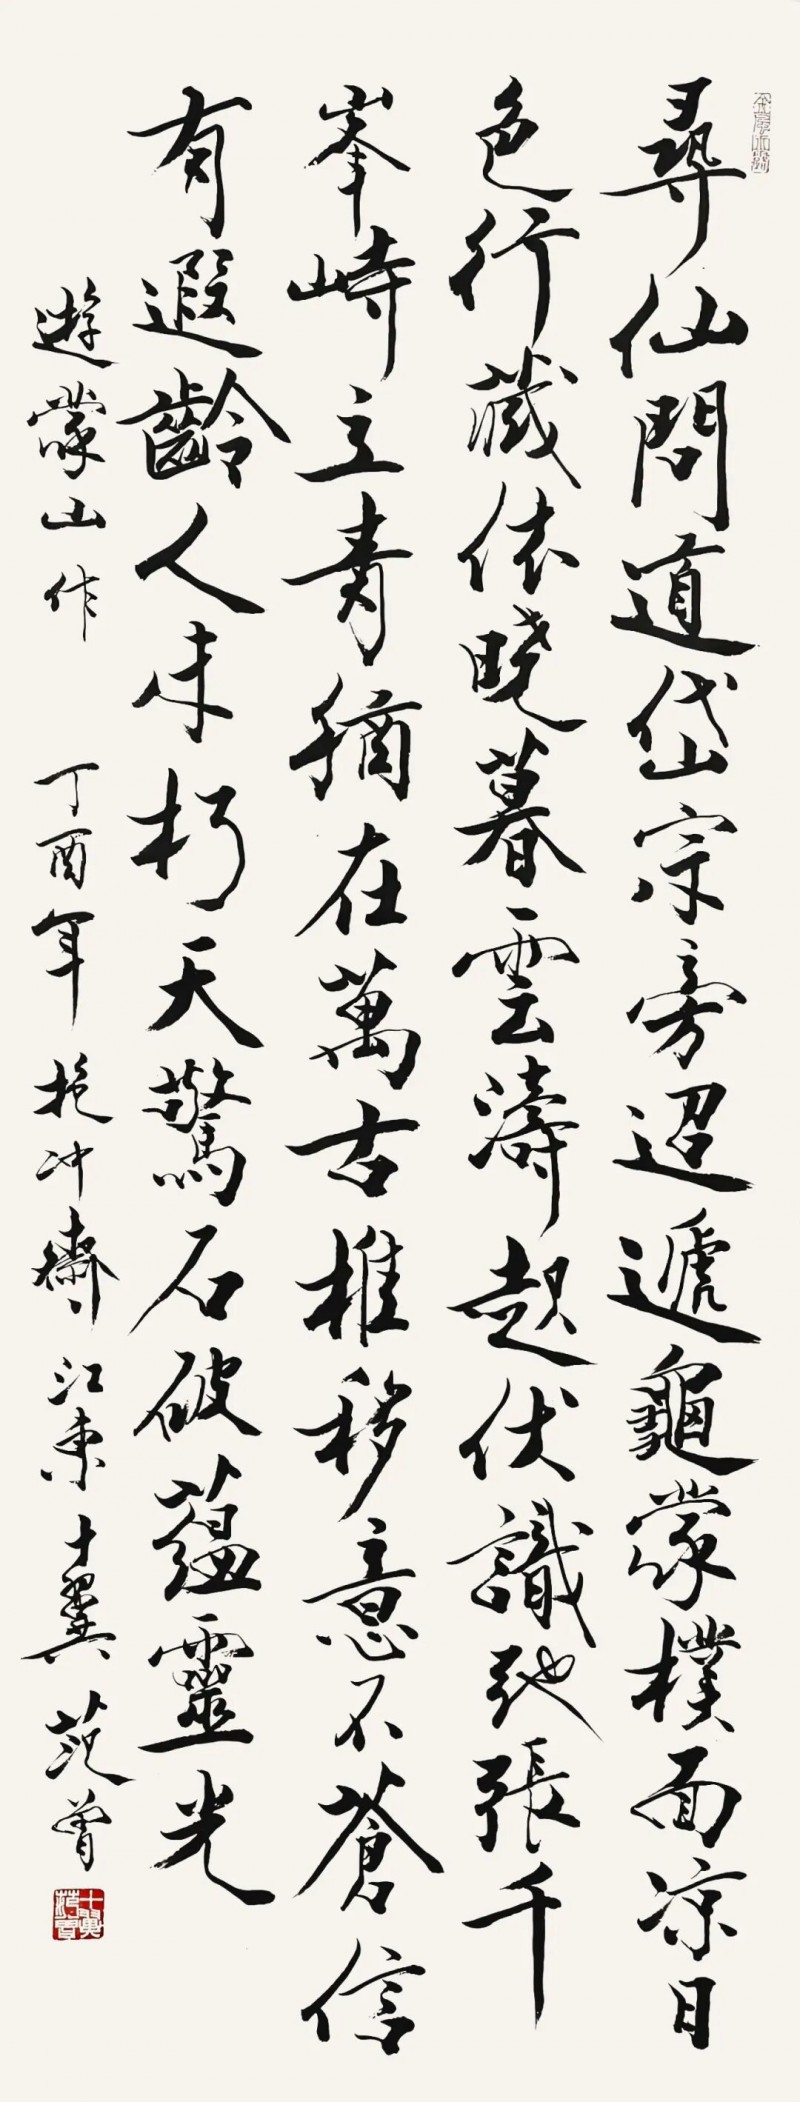 尋仙問道岱宗旁迢遞龜蒙撲面凉日
色行藏依曉暮雲濤起伏識弛張千
峯峙立青猶在萬古推移意不蒼信
有遐齡人未朽天驚石破蘊靈光
遊蒙山作 丁酉年 抱冲齋 江東十翼 范曾
十翼范曾